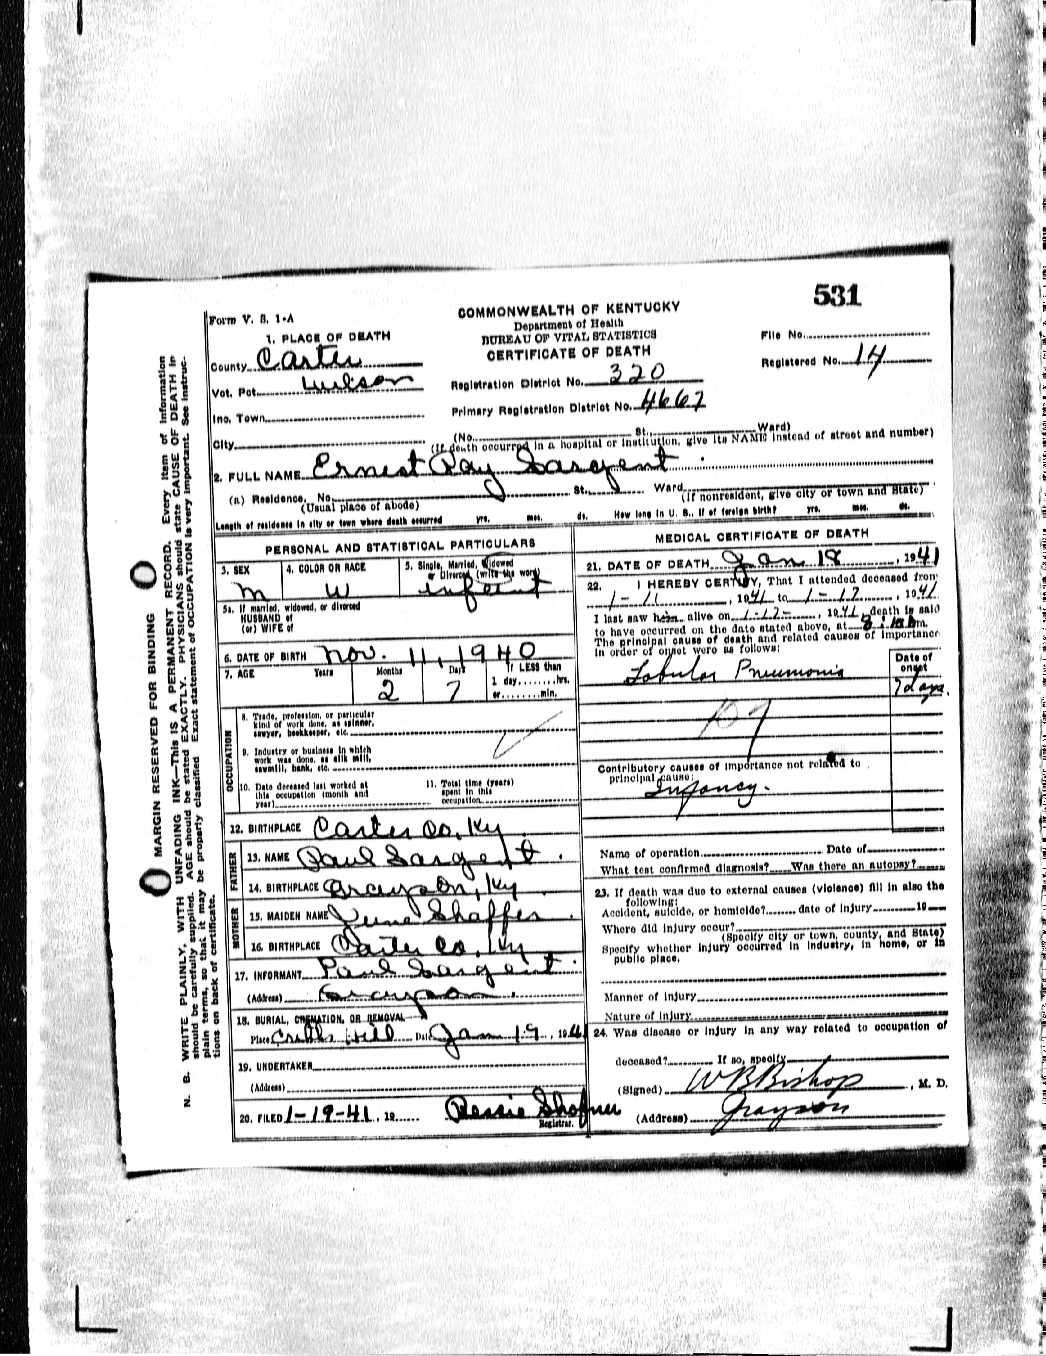 531
Form V. S. 1-A
COMMONWEALTH OF KENTUCKY
Department of Health
BUREAU OF VITAL STATISTICS
CERTIFICATE OF DEATH
File No.
Registered No. 14
1. PLACE OF DEATH
County Carter
Vot. Pct. Wilson
Inc. Town
City
Registration District No. 320
Primary Registration District No. 4667
(No. St., Ward)
(If death occurred in a hospital or institution, give its NAME instead of street and number)
2. FULL NAME Ernest Ray Sargent
(a) Residence, No. St., Ward
(Usual place of abode) (If nonresident, give city or town and State)
Length of residence in city or town where death occurred yrs. mos. ds. How long in U. S., if of foreign birth? yrs. mos. ds.
PERSONAL AND STATISTICAL PARTICULARS
3. SEX 4. COLOR OR RACE 5. Single, Married, Widowed
or Divorced (write the word)
m w infant
5a. If married, widowed, or divorced
HUSBAND of
(or) WIFE of
6. DATE OF BIRTH Nov. 11, 1940
7. AGE Years Months Days If LESS than
1 day, hrs.
or min.
2 7
OCCUPATION
8. Trade, profession, or particular
kind of work done, as spinner,
sawyer, bookkeeper, etc.
9. Industry or business in which
work was done, as silk mill,
sawmill, bank, etc.
10. Date deceased last worked at
this occupation (month and
year)
11. Total time (years)
spent in this
occupation
12. BIRTHPLACE Carter Co, Ky
FATHER
13. NAME Paul Sargent
14. BIRTHPLACE Grayson, Ky
MOTHER
15. MAIDEN NAME June Shaffer
16. BIRTHPLACE Carter Co. Ky
17. INFORMANT Paul Sargent
(Address) Grayson
18. BURIAL, CREMATION, OR REMOVAL
Place Hill Date Jan 19, 1941
19. UNDERTAKER
(Address)
20. FILED 1-19-41, 19
Registrar.
MEDICAL CERTIFICATE OF DEATH
21. DATE OF DEATH Jan 18, 1941
22. I HEREBY CERTIFY, That I attended deceased from
1-11, 1941 to 1-17, 1941
I last saw him alive on 1-17-, 1941, death is said
to have occurred on the date stated above, at 8 m.
The principal cause of death and related causes of importance
in order of onset were as follows:
Date of
onset
Lobular Pneumonia 7 days.
107
Contributory causes of importance not related to
principal cause:
Infancy.
Name of operation Date of
What test confirmed diagnosis? Was there an autopsy?
23. If death was due to external causes (violence) fill in also the
following:
Accident, suicide, or homicide? date of injury 19
Where did injury occur?
(Specify city or town, county, and State)
Specify whether injury occurred in industry, in home, or in
public place.
Manner of injury
Nature of injury
24. Was disease or injury in any way related to occupation of
deceased? If so, specify
(Signed) W B Bishop, M. D.
(Address) Grayson
MARGIN RESERVED FOR BINDING
N. B. WRITE PLAINLY, WITH UNFADING INK—This IS A PERMANENT RECORD. Every item of information
should be carefully supplied. AGE should be stated EXACTLY. PHYSICIANS should state CAUSE OF DEATH in
plain terms, so that it may be properly classified. Exact statement of OCCUPATION is very important. See instruc-
tions on back of certificate.